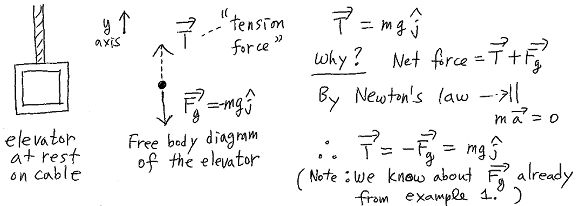 y
axis
T⃗
"tension
force"
F⃗g = -mg ĵ
elevator
at rest
on cable
Free body diagram
of the elevator
T⃗ = mg ĵ
Why? Net force = T⃗ + F⃗g
By Newton's law --→ ||
m a⃗ = 0
∴ T⃗ = -F⃗g = mg ĵ
(Note: we know about F⃗g already
from example 1. )